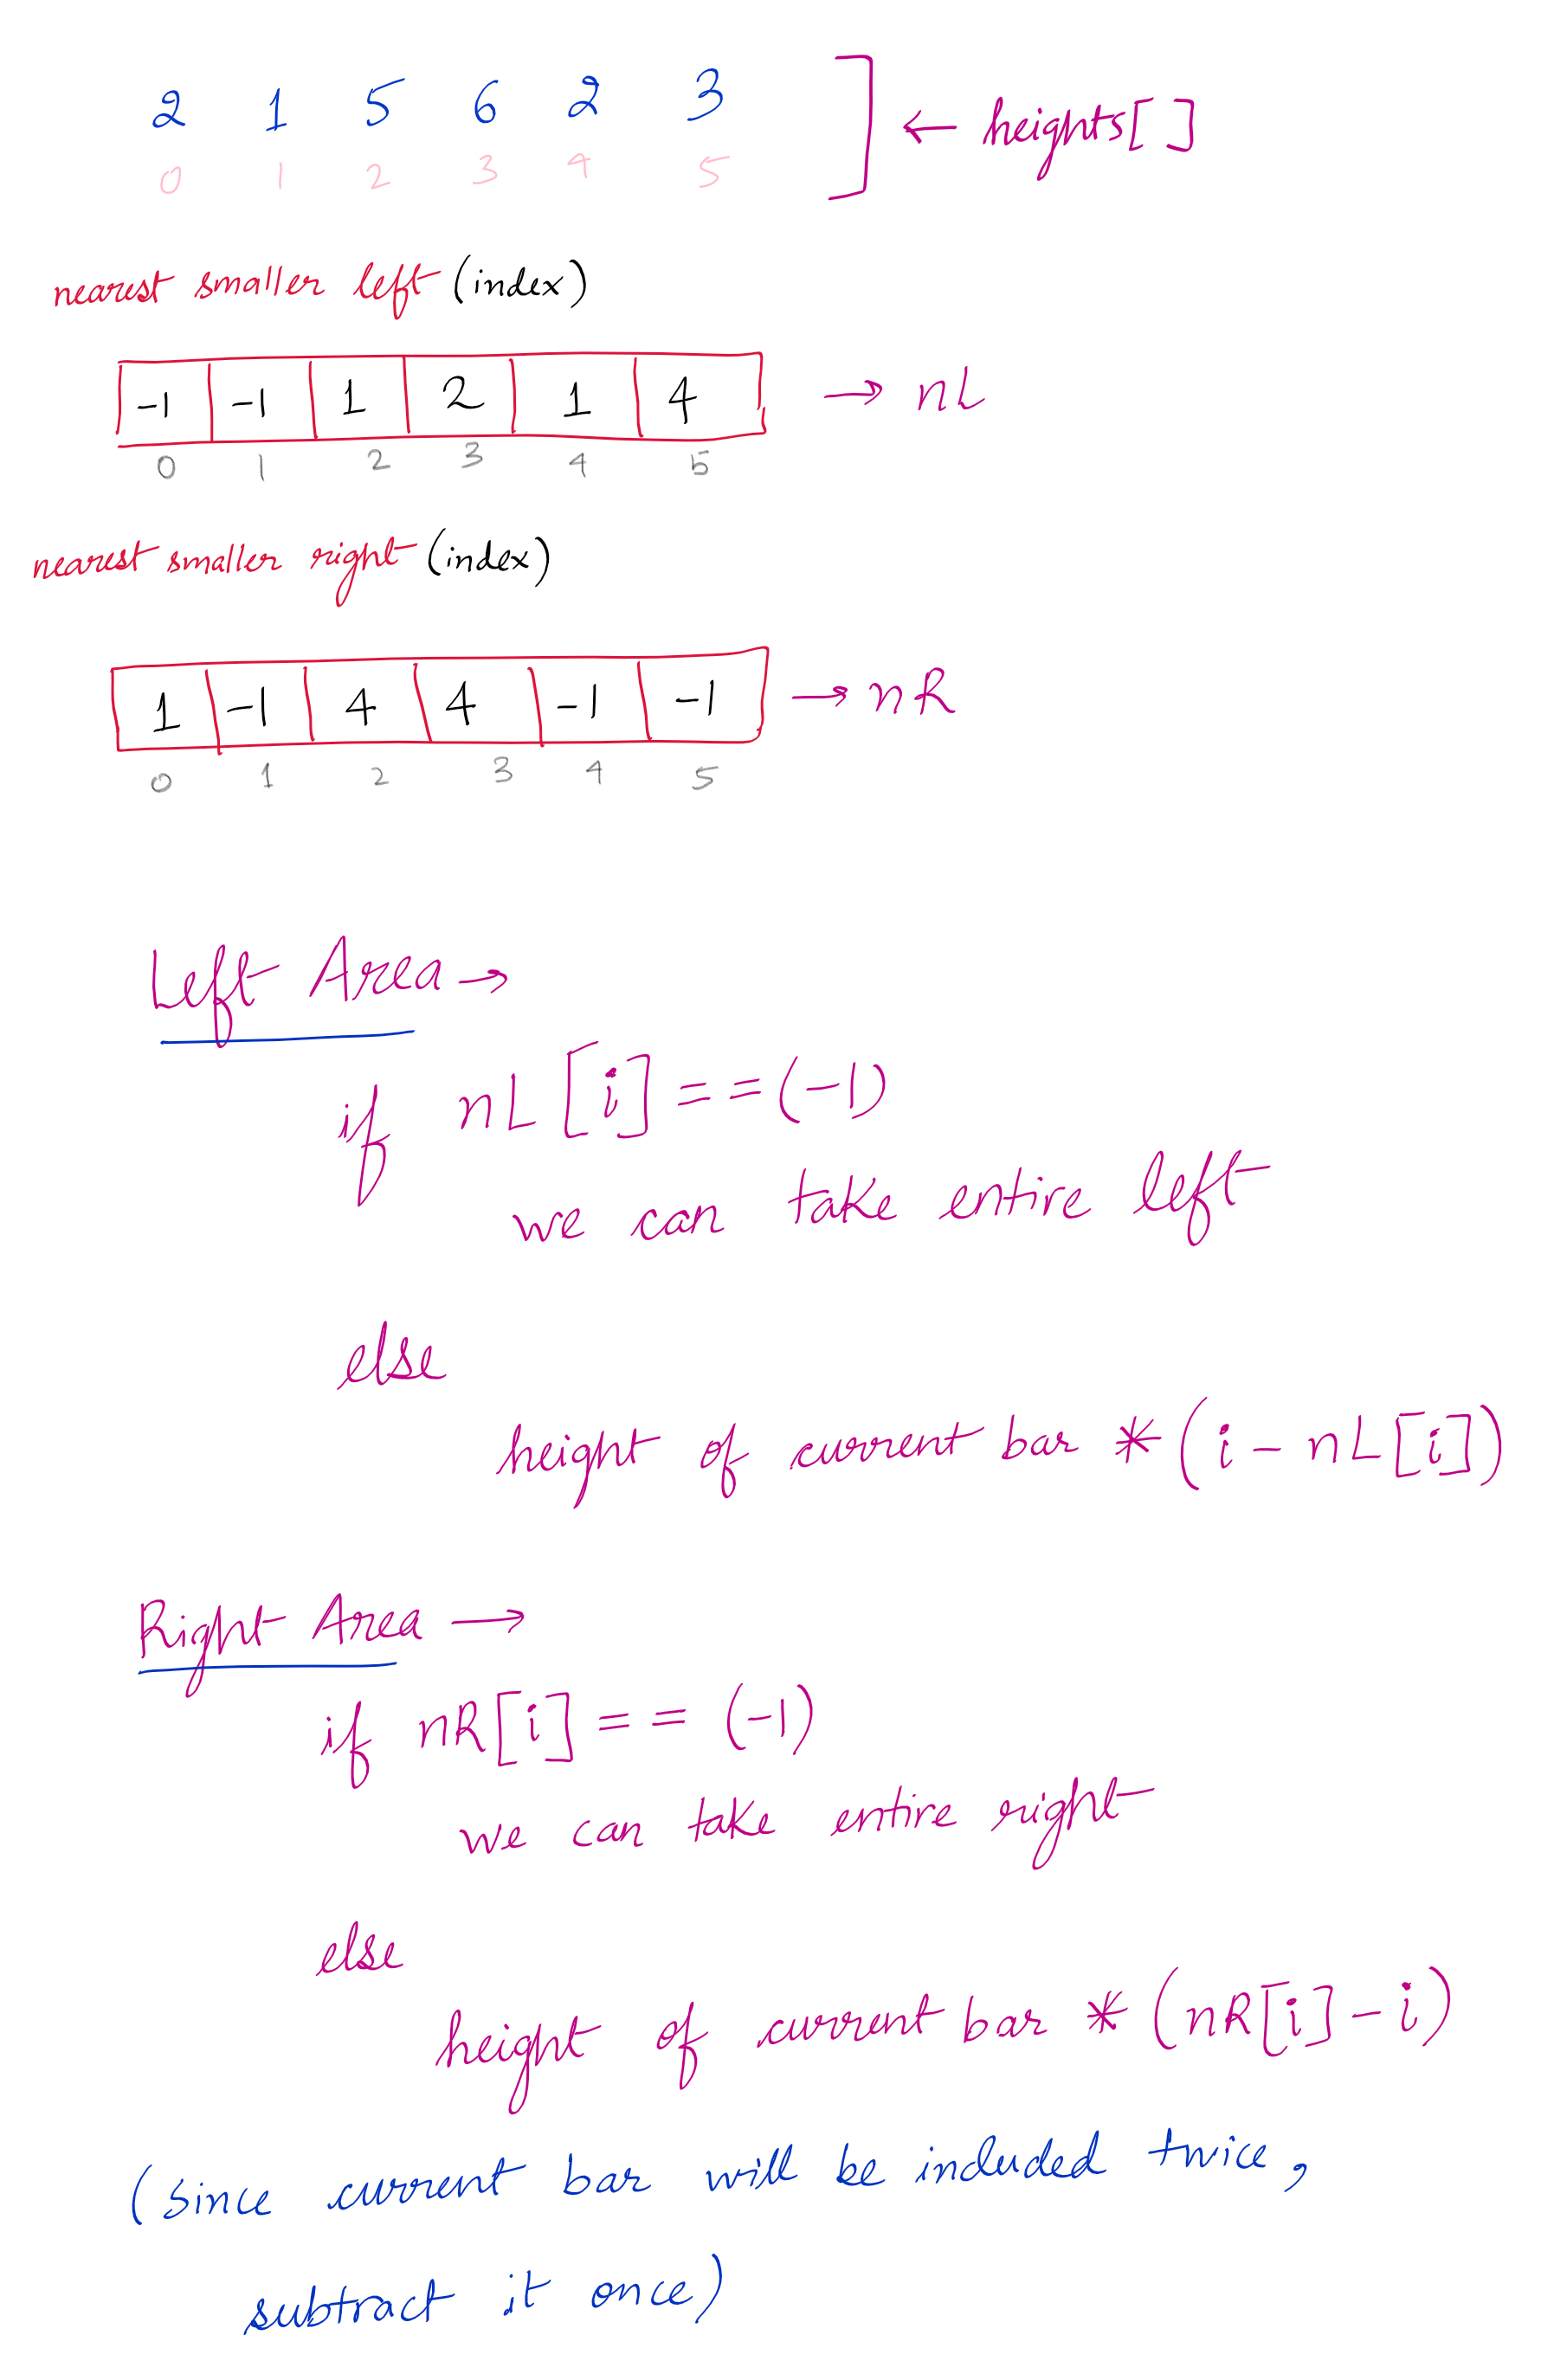 2 1 5 6 2 3 ] ← heights[]
0 1 2 3 4 5
nearest smaller left (index)
-1 -1 1 2 1 4 → nL
0 1 2 3 4 5
nearest smaller right (index)
1 -1 4 4 -1 -1 → nR
0 1 2 3 4 5
Left Area →
if nL[i] == (-1)
we can take entire left
else
height of current bar * (i - nL[i])
Right Area →
if nR[i] == (-1)
we can take entire right
else
height of current bar * (nR[i] - i)
(since current bar will be included twice,
subtract it once)